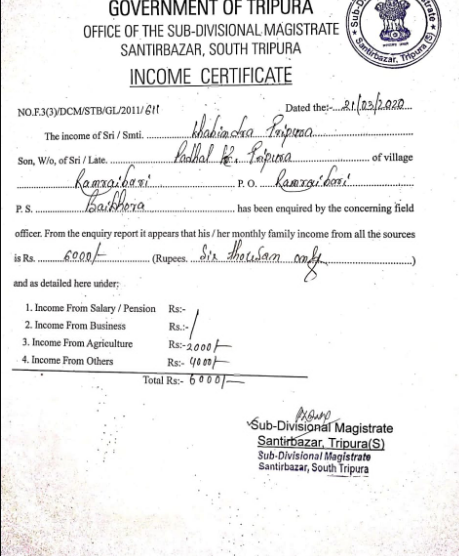 GOVERNMENT OF TRIPURA
OFFICE OF THE SUB-DIVISIONAL MAGISTRATE
SANTIRBAZAR, SOUTH TRIPURA
Santirbazar, Tripura(S)
INCOME CERTIFICATE
NO.F.3(3)/DCM/STB/GL/2011/611
Dated the:- 21/03/2020
The income of Sri / Smti. Khabindra Tripura
Son, W/o, of Sri / Late. Padhal Kr. Tripura of village
Ramraibari P. O. Ramraibari
P. S. Baikhora has been enquired by the concerning field
officer. From the enquiry report it appears that his / her monthly family income from all the sources
is Rs. 6000/- (Rupees. Six thousam only)
and as detailed here under;
1. Income From Salary / Pension Rs:-
2. Income From Business Rs.:- /
3. Income From Agriculture Rs:- 2000/-
4. Income From Others Rs:- 4000/-
Total Rs:- 6000/-
Sub-Divisional Magistrate
Santirbazar, Tripura(S)
Sub-Divisional Magistrate
Santirbazar, South Tripura